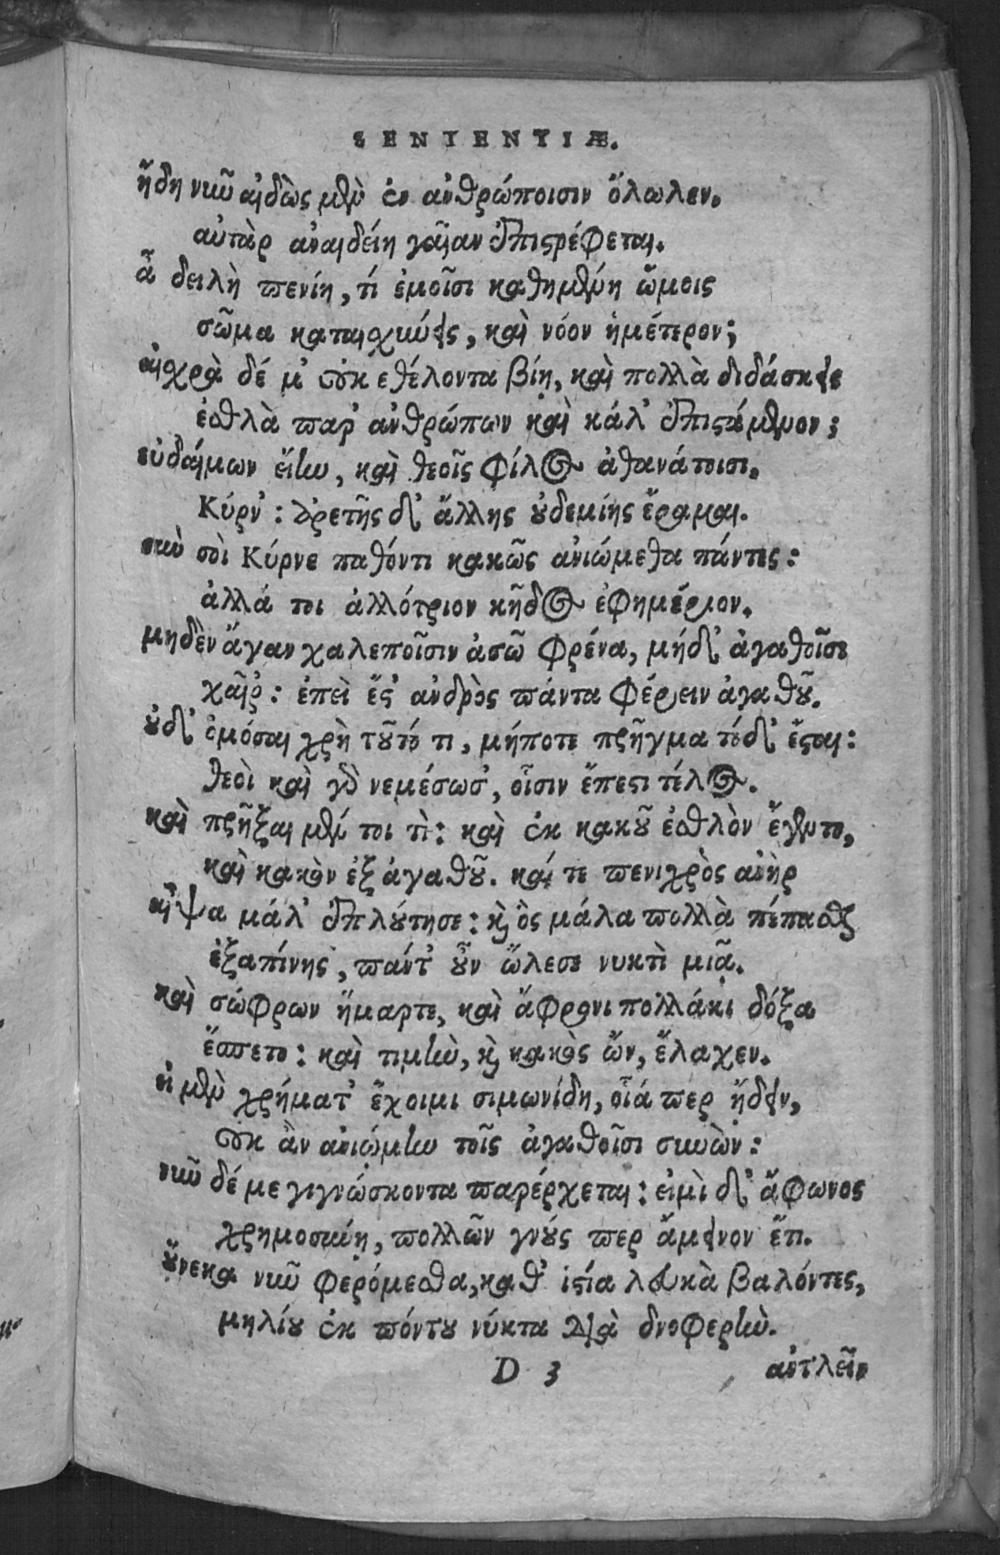 SENTENTIÆ.
ἤδη νῦν αἰδὼς μὲν ἐν ἀνθρώποισιν ὄλωλεν.
αὐτὰρ ἀναιδείη γαῖαν ἐπιστρέφεται.
ἆ δειλὴ πενίη, τί ἐμοῖσι καθημένη ὤμοις
σῶμα καταισχύνεις, καὶ νόον ἡμέτερον;
αἰσχρὰ δέ μ' οὐκ εθέλοντα βίῃ, καὶ πολλὰ διδάσκεις
ἐσθλὰ παρ' ἀνθρώπων καὶ κάλ' ἐπιστάμενον;
εὐδαίμων εἴην, καὶ θεοῖς φίλος ἀθανάτοισι.
Κύρν': ἀρετῆς δ' ἄλλης οὐδεμίης ἔραμαι.
σὺν σοὶ Κύρνε παθόντι κακῶς ἀνιώμεθα πάντες:
ἀλλά τοι ἀλλότριον κῆδος ἐφημέριον.
μηδὲν ἄγαν χαλεποῖσιν ἀσῶ φρένα, μήδ' ἀγαθοῖσι
χαῖρ': ἐπεὶ ἔστ' ἀνδρὸς πάντα φέρειν ἀγαθοῦ.
οὐδ' ὀμόσαι χρὴ τοῦτό τι, μήποτε πρῆγμα τόδ' ἔσται:
θεοὶ καὶ γὰρ νεμέσωσ', οἷσιν ἔπεστι τέλος.
καὶ πρῆξαι μέν τοι τὶ: καὶ ἐκ κακοῦ ἐσθλὸν ἔγεντο,
καὶ κακὸν ἐξ ἀγαθοῦ. καί τε πενιχρὸς ἀνὴρ
αἶψα μάλ' ἐπλούτησε: καὶ ὃς μάλα πολλὰ πέπασται
ἐξαπίνης, πάντ' οὖν ὤλεσε νυκτὶ μιᾷ.
καὶ σώφρων ἥμαρτε, καὶ ἄφρονι πολλάκι δόξα
ἕσπετο: καὶ τιμὴν, καὶ κακὸς ὢν, ἔλαχεν.
εἰ μὲν χρήματ' ἔχοιμι σιμωνίδη, οἷά περ ᾔδειν,
οὐκ ἂν ἀνιῴμην τοῖς ἀγαθοῖσι συνών:
νῦν δέ με γιγνώσκοντα παρέρχεται: εἰμὶ δ' ἄφωνος
χρημοσύνῃ, πολλῶν γνούς περ ἄμεινον ἔτι.
οὕνεκα νῦν φερόμεσθα, καθ' ἱστία λευκὰ βαλόντες,
μηλίου ἐκ πόντου νύκτα διὰ δνοφερὴν.
D 3
ἀντλεῖν